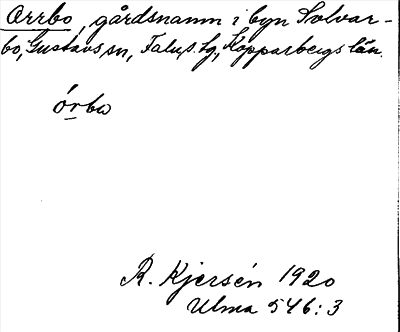 Orrbo, gårdsnamn i byn Solvar-
bo, Gustavs sn, Falu s. tg, Kopparbergs län.
órbo
R. Kjersén 1920
Ulma 546:3